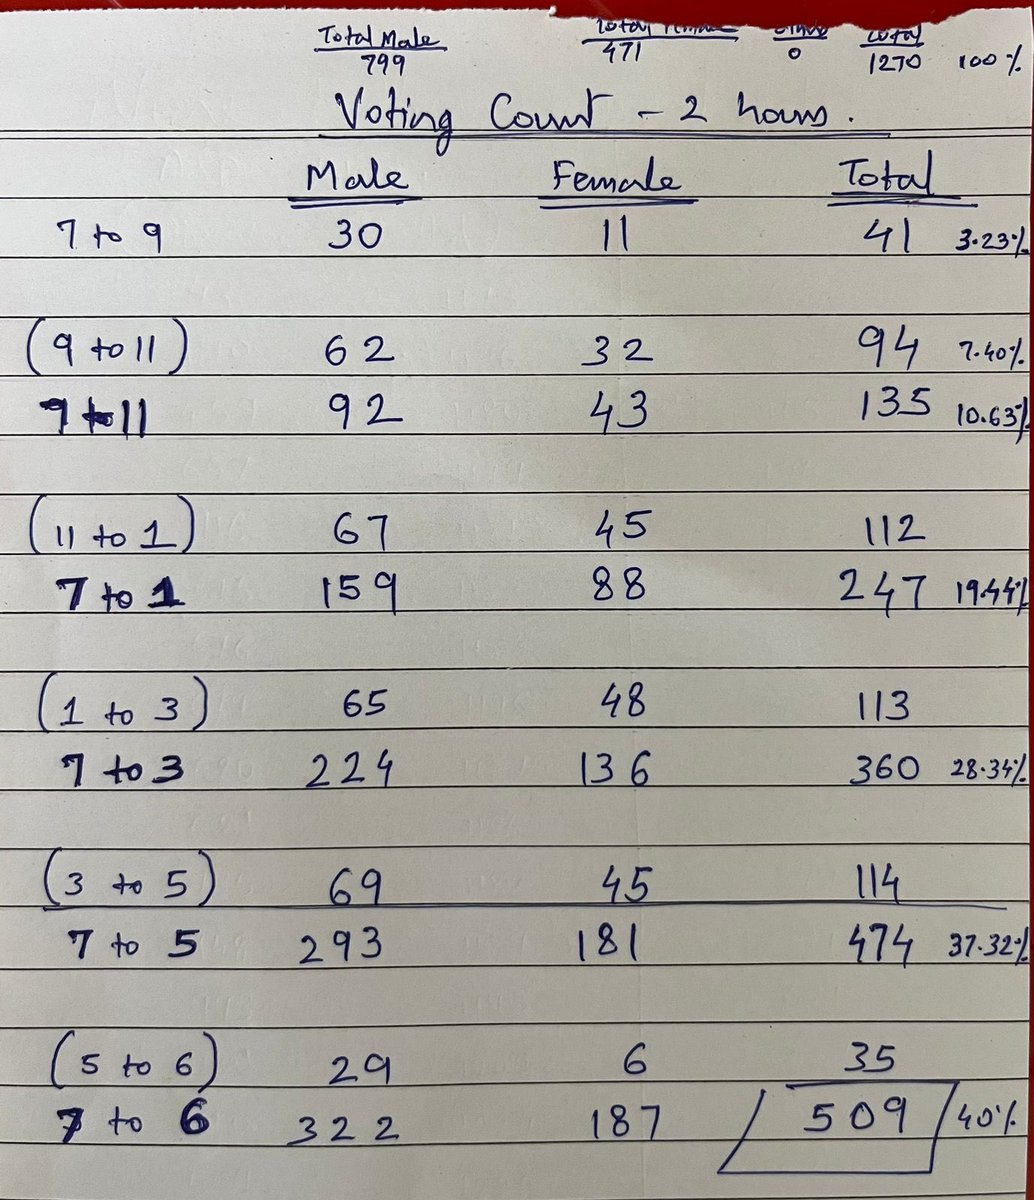 Total Male Total Female Total
799 471 0 1270 100%
Voting Count - 2 hours.
Male Female Total
7 to 9 30 11 41 3.23%
(9 to 11) 62 32 94 7.40%
7 to 11 92 43 135 10.63%
(11 to 1) 67 45 112
7 to 1 159 88 247 19.44%
(1 to 3) 65 48 113
7 to 3 224 136 360 28.34%
(3 to 5) 69 45 114
7 to 5 293 181 474 37.32%
(5 to 6) 29 6 35
7 to 6 322 187 509 40%